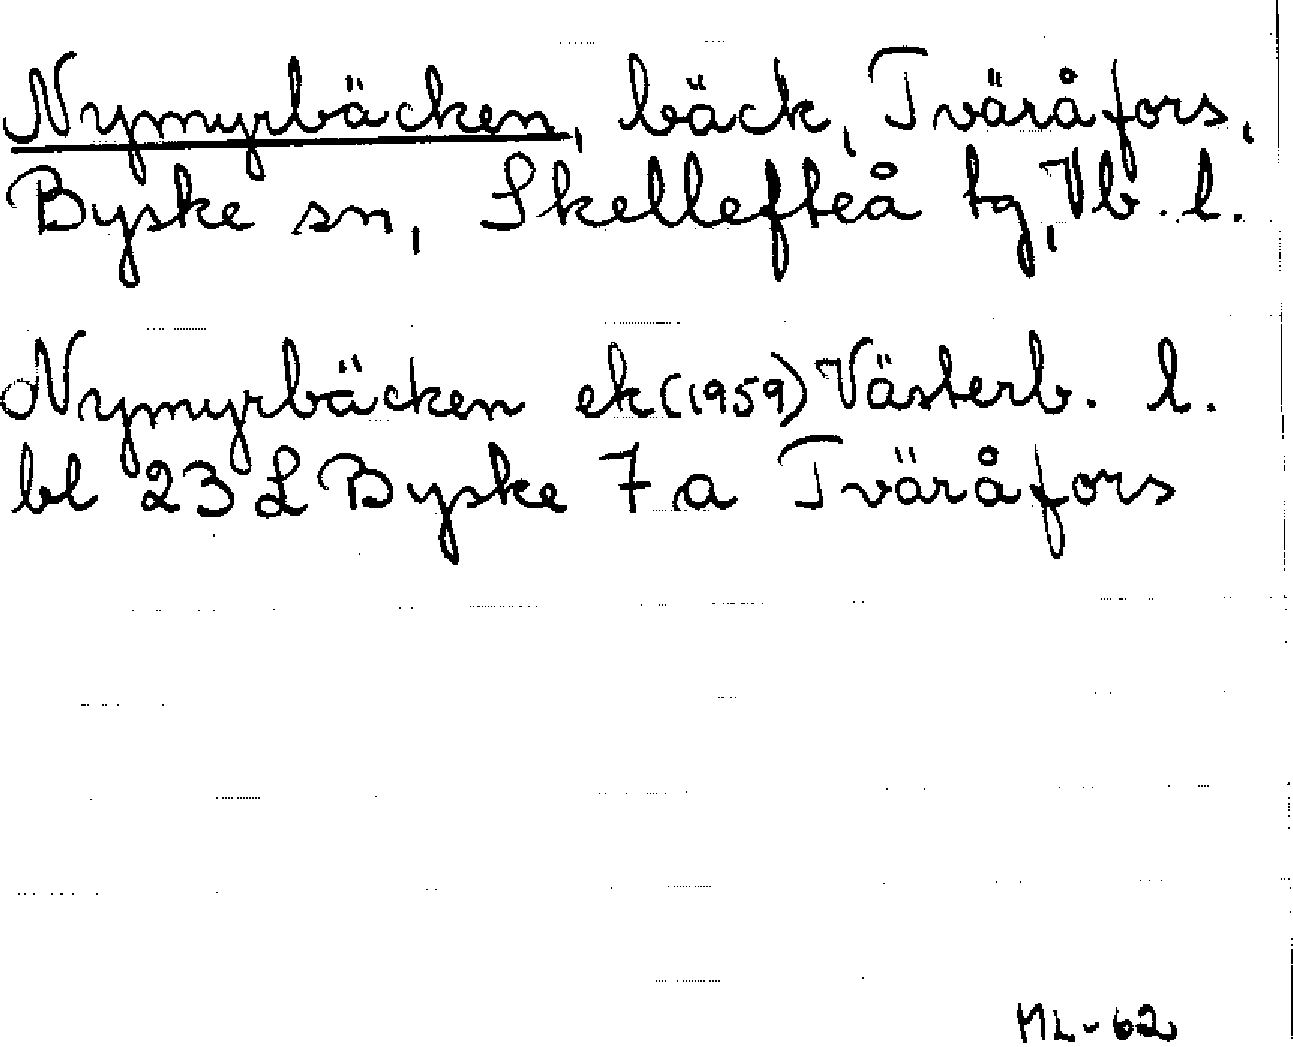 Nymyrbäcken, bäck, Tväråfors,
Byske sn, Skellefteå tg, Vb. l.
Nymyrbäcken ek (1959) Västerb. l.
bl 23 L Byske 7 a Tväråfors
ML-62